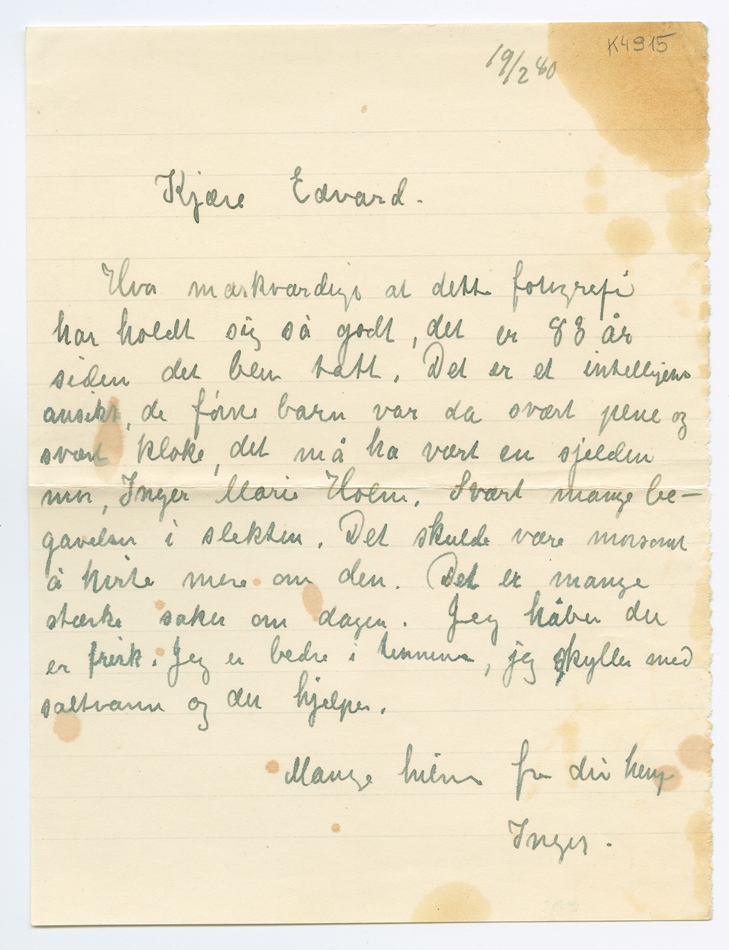 K4915
19/2 40
Kjære Edvard.
Hvor mærkværdigt at dette fotografi
har holdt sig så godt, det er 83 år
siden det blev tatt. Det er et intelligens
ansikt, de første barn var da svært pene og
svært kloke, det må ha vært en sjelden
mor, Inger Marie Holm. Svært mange be-
gavelser i slekten. Det skulde være morsomt
å høre mere om den. Det er mange
stærke saker om dagen. Jeg håber du
er frisk. Jeg er bedre i tennene, jeg skyller med
saltvann og det hjelper.
Mange hilsner fra din heng
Inger.